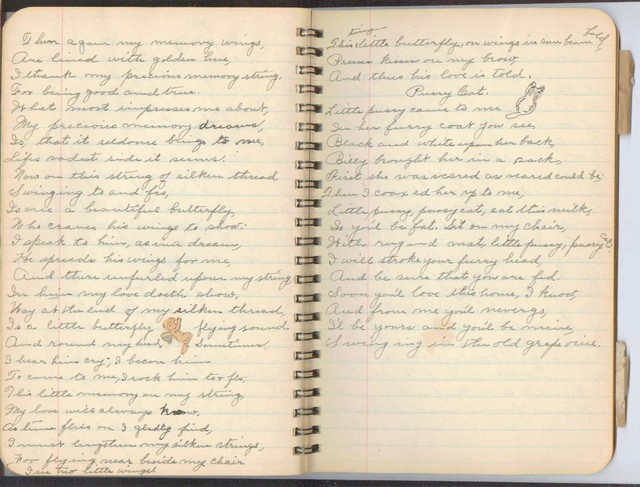 Then again my memory wings,
Are lined with golden hue,
I thank my precious memory string,
For being good and true.
What most impresses me about,
My precious memory dreams,
Is, that it seldome brings to me,
Lifes sadest side it seems:
Now on this string of silken thread
Swinging to and fro,
Is once a beautiful butterfly,
Who craves his wings to show:
I speak to him, as in a dream,
He spreds his wings for me,
And there unfurled upon my string
In him my love doeth show,
Way at the end of my silken thread,
Is a little butterfly flying sound
And round my head, Sometimes,
I hear him cry; I becon him
To come to me, I rock him to & fro,
This little memory on my string
My love will always know,
As time flies on I gladly find,
I must lengthen my silken strings,
For flying near beside my chair
I see two little wings!
This tiny little butterfly, on wings in sun beam Gold
Press kisses on my brow
And thus his love is told.
Pussy Cat.
Little pussy came to me
In her furry coat you see,
Black and white upon her back,
Billy brought her in a sack,
First she was scared as scared could be;
Then I coaxed her up to me,
Little pussy, pussy cat, eat this milk,
So you'l be fat. Sit on my chair,
With rug and mat, little pussy, pussy Cat.
I will stroke your furry head,
And be sure that you are fed.
Soon you'l love this house, I know,
And from me you'l never go,
I'll be yours and you'l be mine,
Swinging in the old grape vine.